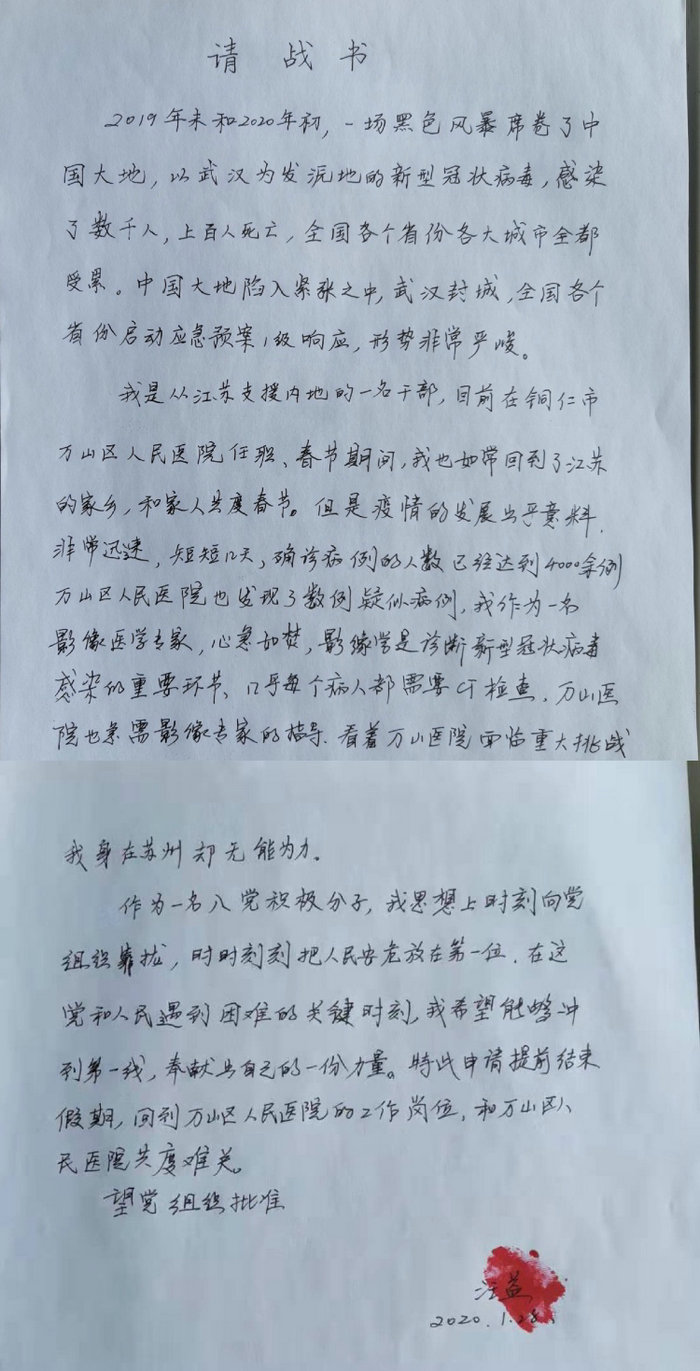 请战书
2019年末和2020年初，一场黑色风暴席卷了中
国大地，以武汉为发源地的新型冠状病毒，感染
了数千人，上百人死亡，全国各个省份各大城市全都
受累。中国大地陷入紧张之中，武汉封城，全国各个
省份启动应急预案1级响应，形势非常严峻。
我是从江苏支援内地的一名干部，目前在铜仁市
万山区人民医院任职、春节期间，我也如常回到了江苏
的家乡，和家人共度春节。但是疫情的发展出乎意料，
非常迅速，短短几天，确诊病例的人数已经达到4000余例
万山区人民医院也发现了数例疑似病例，我作为一名
影像医学专家，心急如焚，影像学是诊断新型冠状病毒
感染的重要环节、几乎每个病人都需要CT检查，万山医
院也急需影像专家的指导．看着万山医院面临重大挑战
我身在苏州却无能为力。
作为一名入党积极分子，我思想上时刻向党
组织靠拢，时时刻刻把人民安危放在第一位．在这
党和人民遇到困难的关键时刻，我希望能够冲
到第一线，奉献出自己的一份力量。特此申请提前结束
假期，回到万山区人民医院的工作岗位，和万山区人
民医院共度难关。
望党组织批准
汪益
2020.1.28